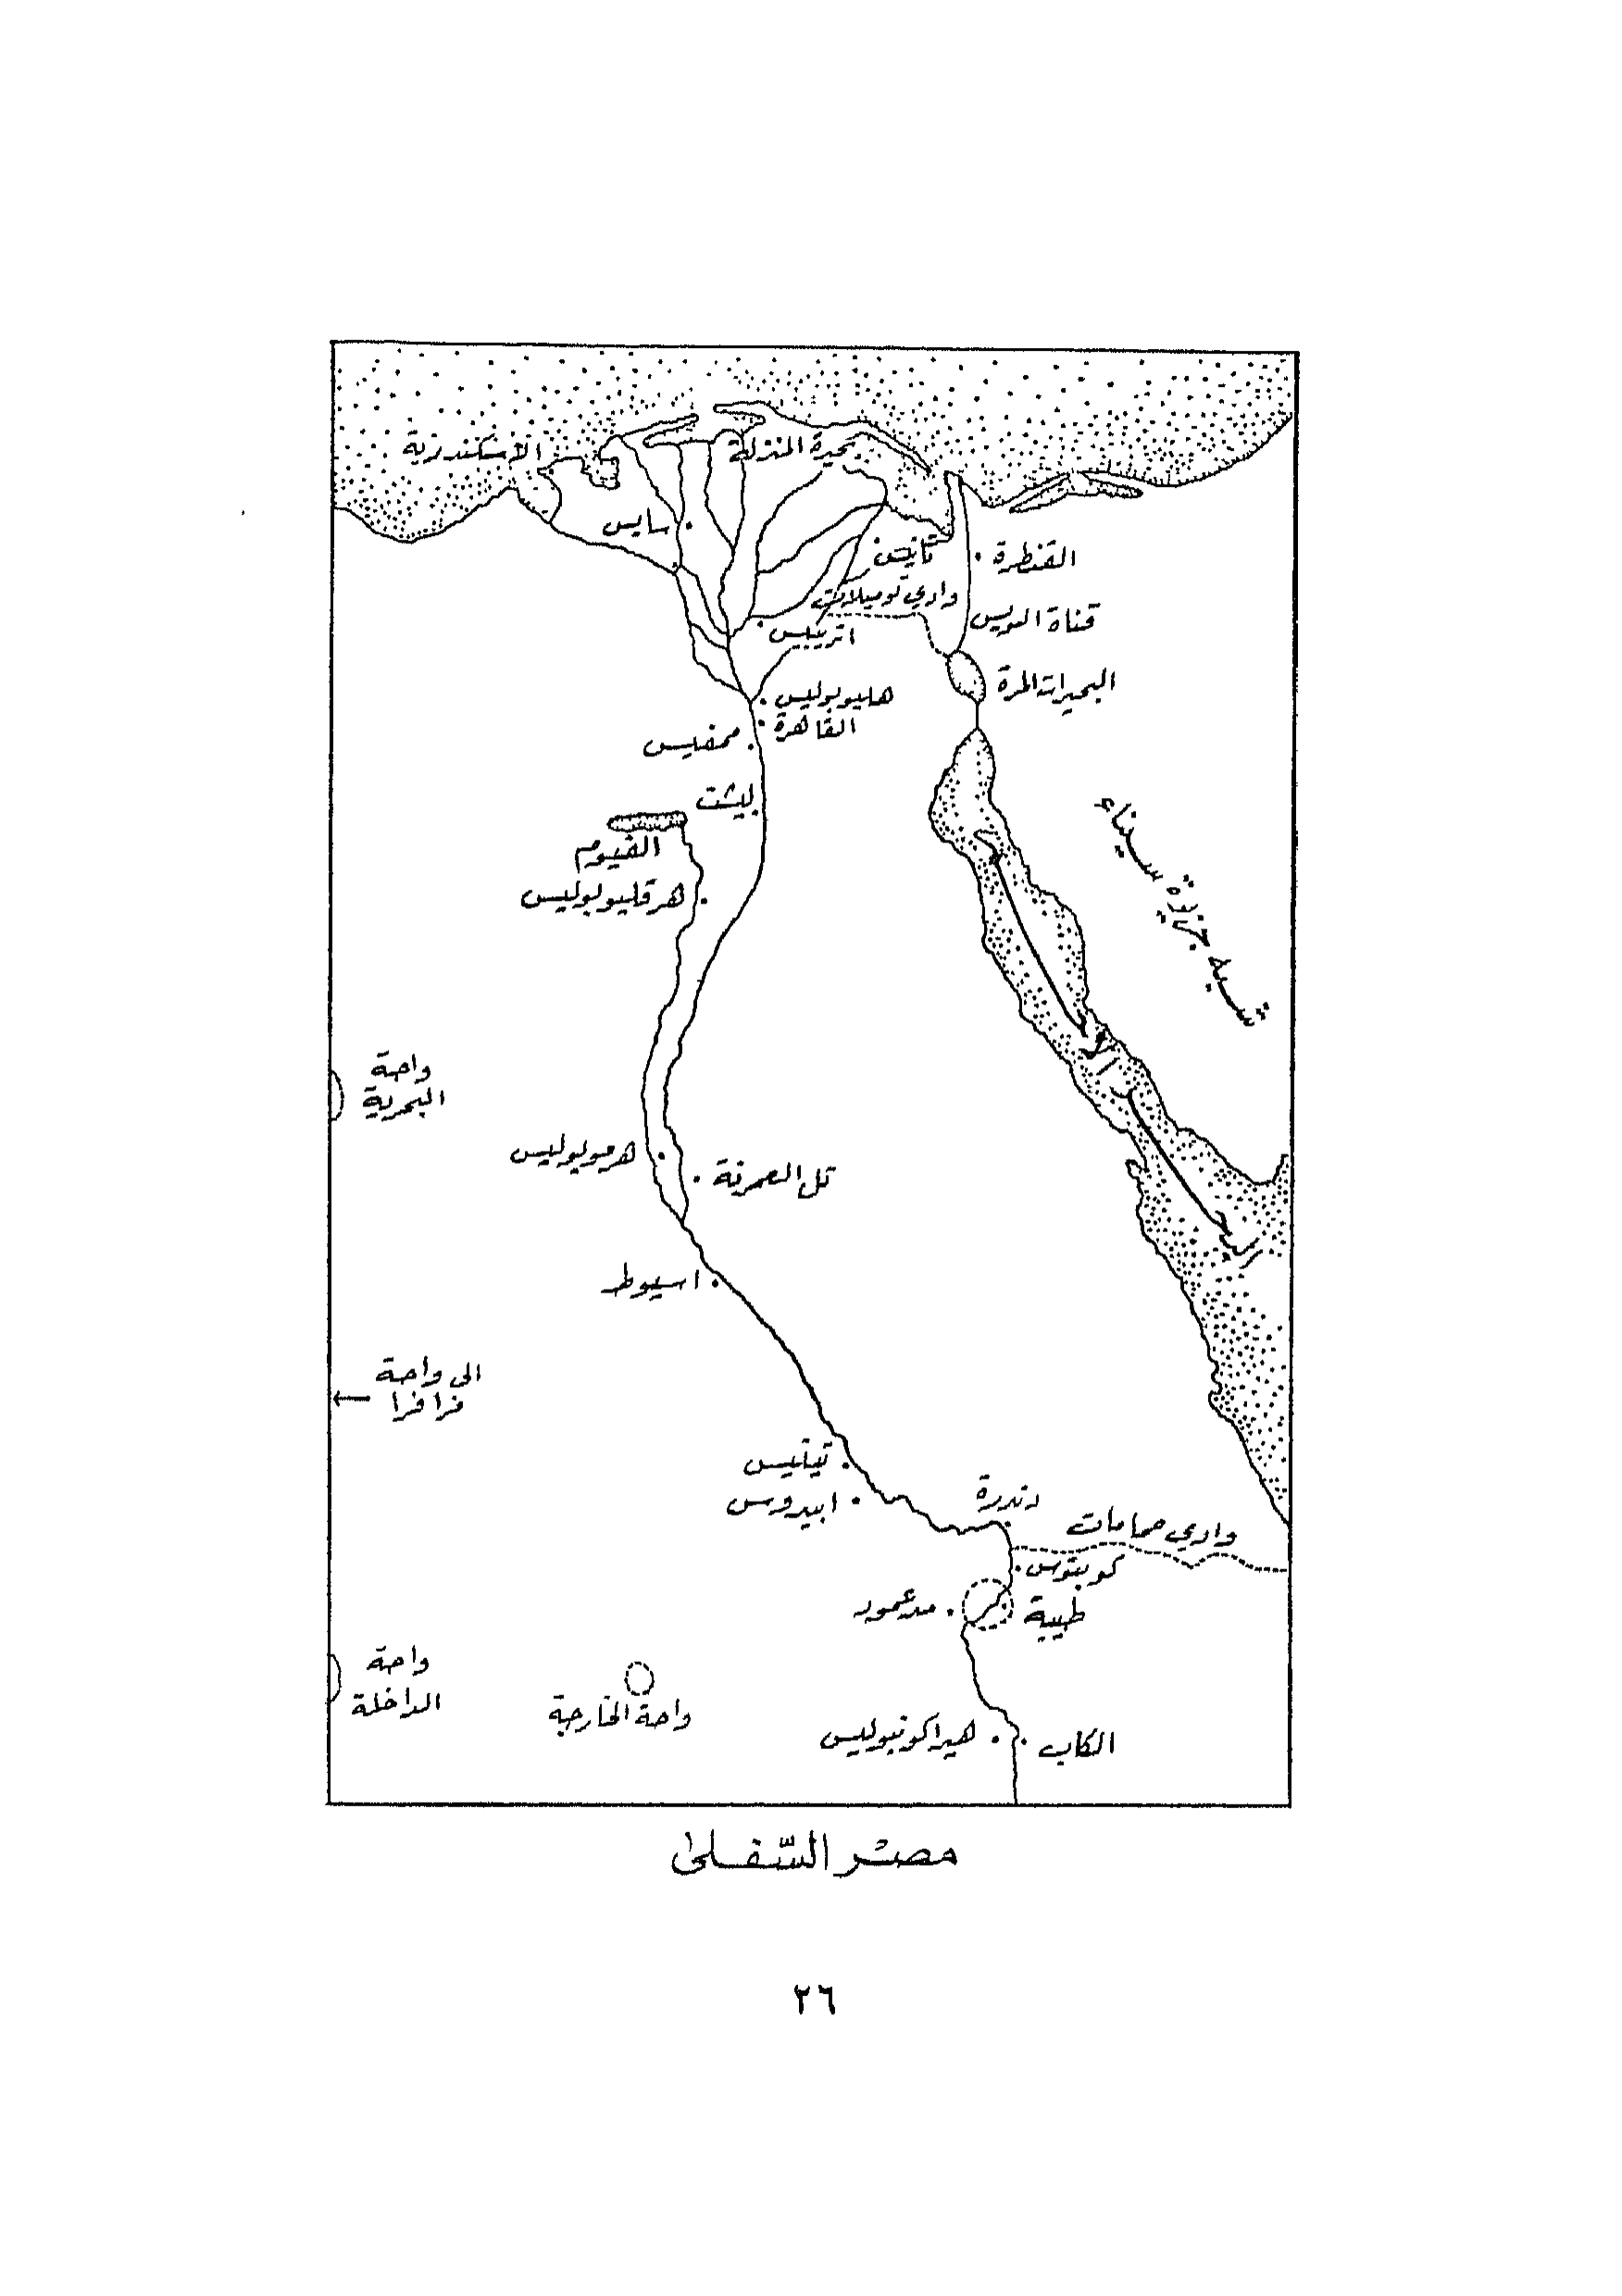 بحيرة المنزلة
الاسكندرية
سايس
تانيس
القنطرة
وادي توميلات
قناة السويس
اتريبس
البحيرات المرة
هليوبوليس
القاهرة
ممفيس
ليشت
الفيوم
هرقليوبوليس
شبه جزيرة سيناء
واحة
البحرية
هرموبوليس
تل العمرنة
اسيوط
الى واحة
فرافرا
تينيس
ابيدوس
دندرة
وادي حمامات
كوبتوس
طيبة
مدعمود
واحة
الداخلة
واحة الخارجة
هيراكونبوليس
الكاب
مصر السّفلى
٢٦